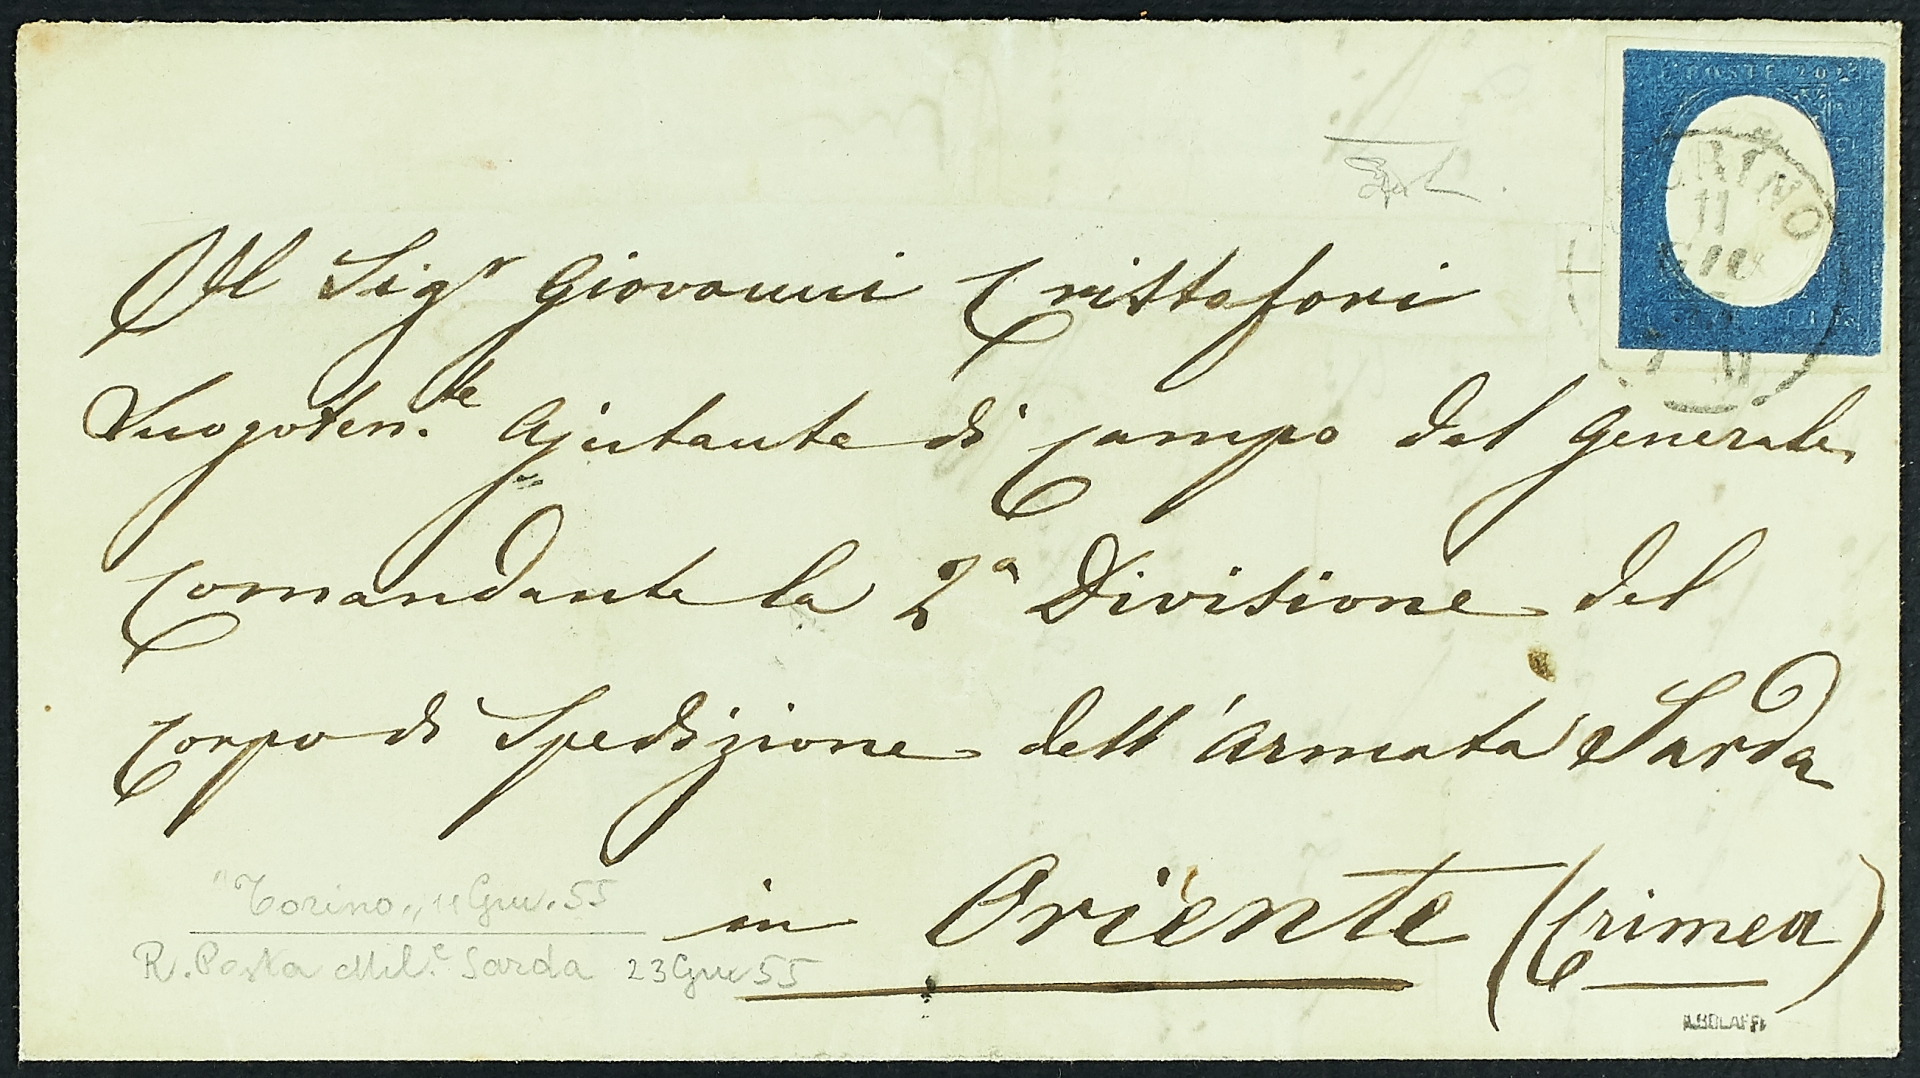 POSTE 20
TORINO
11
GIU
Al Sigr Giovanni Cristofori
Luogoten.te Ajutante di Campo del Generale
Comandante la 2a Divisione del
Corpo di Spedizione dell'Armata Sarda
in Oriente (Crimea)
"Torino„ 11 Giu. 55
R. Posta Mil.e Sarda 23 Giu 55
A.BOLAFFI